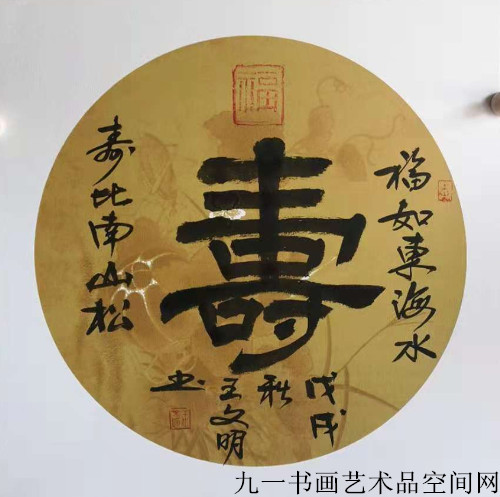 福
壽
福如東海水
寿比南山松
戊戌
秋
王文明
书
九一书画艺术品空间网